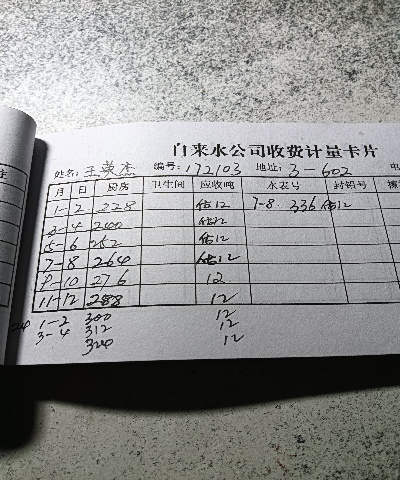 自来水公司收费计量卡片
姓名: 王英杰 编号: 172103 地址: 3-602 电
月 日 厨房 卫生间 应收吨 水表号 封铅号
1-2 228 估12 7-8 336 估12
3-4 240 估12
5-6 252 估12
7-8 264 估12
9-10 276 12
11-12 288 12
24 1-2 300 12
3-4 312 12
324 12